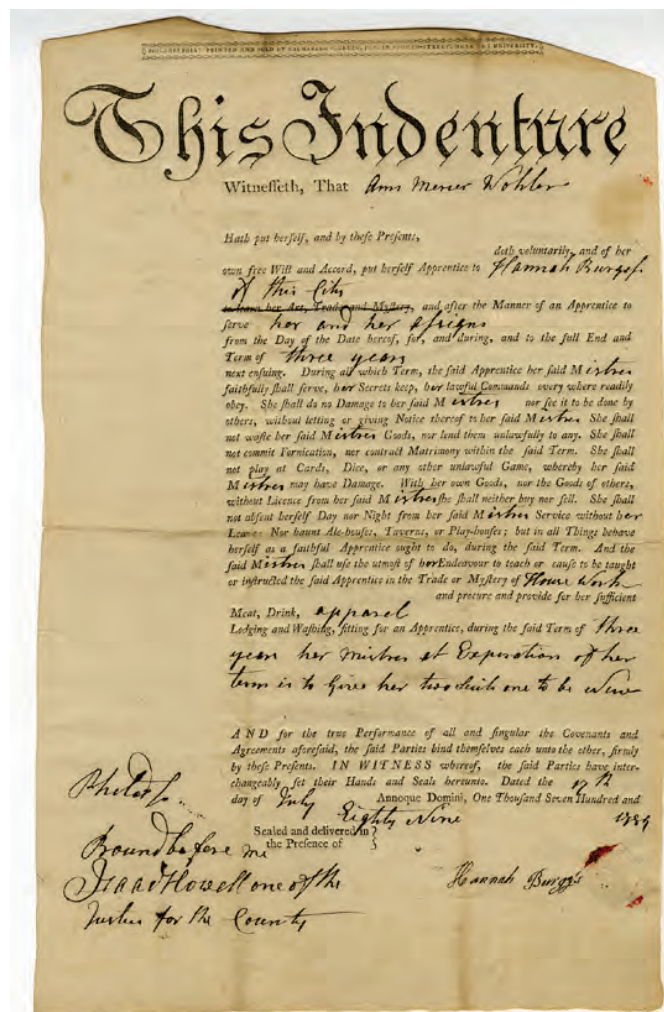 PHILADELPHIA: PRINTED AND SOLD BY
This Indenture
Witnesseth, That Ann Mercer Wohler
Hath put herself, and by these Presents,
doth voluntarily, and of her
own free Will and Accord, put herself Apprentice to Hannah Burgess
of this City
to learn her Art, Trade and Mystery, and after the Manner of an Apprentice to
serve her and her assigns
from the Day of the Date hereof, for, and during, and to the full End and
Term of three years
next ensuing. During all which Term, the said Apprentice her said Mistres
faithfully shall serve, her Secrets keep, her lawful Commands every where readily
obey. She shall do no Damage to her said Mistres nor see it to be done by
others, without letting or giving Notice thereof to her said Mistres She shall
not waste her said Mistres Goods, nor lend them unlawfully to any. She shall
not commit Fornication, nor contract Matrimony within the said Term. She shall
not play at Cards, Dice, or any other unlawful Game, whereby her said
Mistres may have Damage. With her own Goods, nor the Goods of others,
without Licence from her said Mistres she shall neither buy nor sell. She shall
not absent herself Day nor Night from her said Mistres Service without her
Leave: Nor haunt Ale-houses, Taverns, or Play-houses; but in all Things behave
herself as a faithful Apprentice ought to do, during the said Term. And the
said Mistres shall use the utmost of her Endeavour to teach or cause to be taught
or instructed the said Apprentice in the Trade or Mystery of House Work
and procure and provide for her sufficient
Meat, Drink, apparel
Lodging and Washing, fitting for an Apprentice, during the said Term of three
years her Mistres at Experation of her
term is to Give her two suits one to be New
AND for the true Performance of all and singular the Covenants and
Agreements aforesaid, the said Parties bind themselves each unto the other, firmly
by these Presents. IN WITNESS whereof, the said Parties have inter-
changeably set their Hands and Seals hereunto. Dated the 17th
day of July Annoque Domini, One Thousand Seven Hundred and
Eighty Nine 1789
Sealed and delivered in
the Presence of
Philad
Bound before me
Isaac Howell one of the
Justices for the County
Hannah Burgss